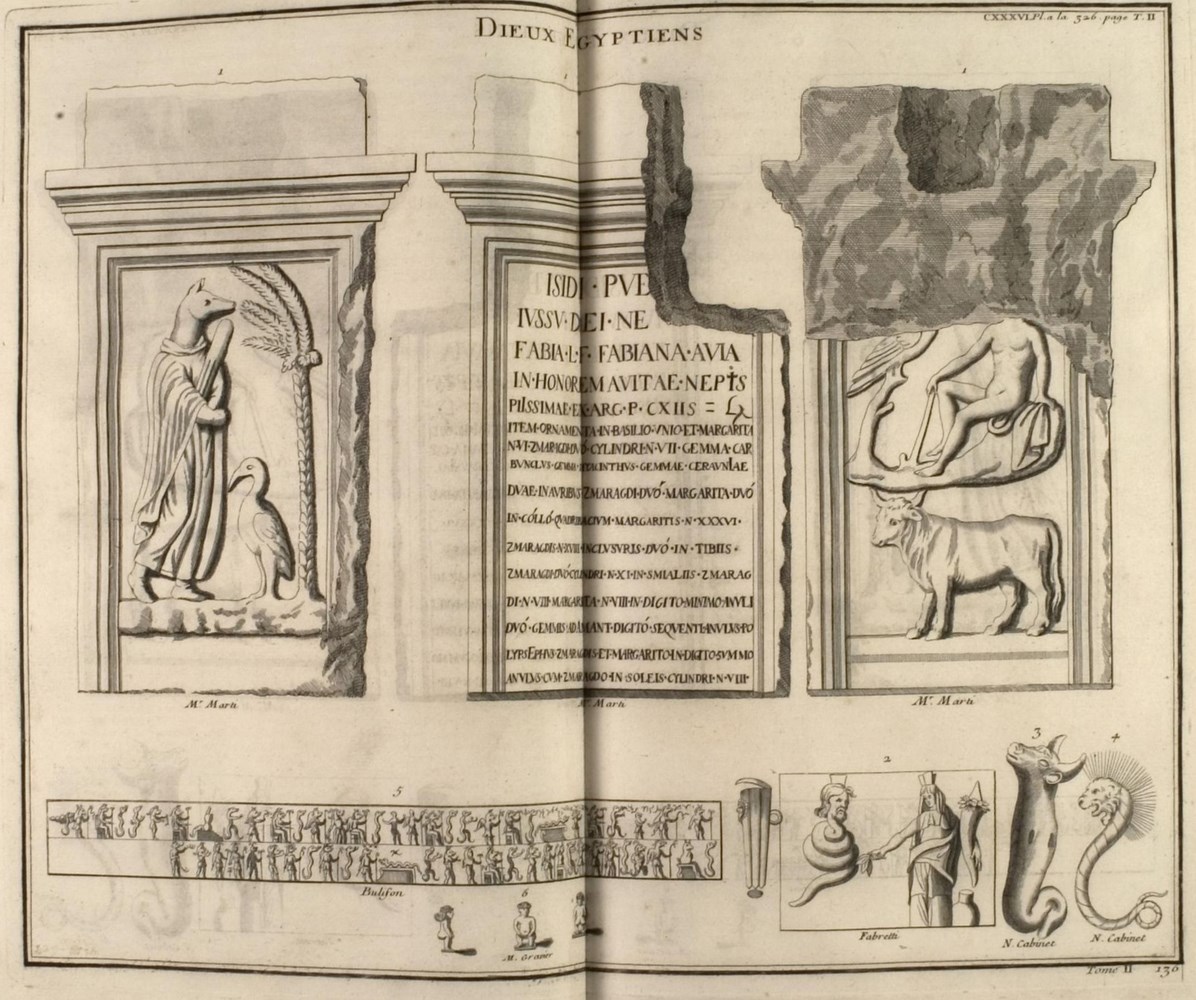 CXXXVI.Pl. a la 326. page T. II
DIEUX EGYPTIENS
1
1
1
ISIDI · PVE
IVSSV · DEI · NE
FABIA · L · F · FABIANA · AVIA
IN · HONOREM AVITAE · NEPTIS
PIISSIMAE · EX · ARG · P · CXIIS =
ITEM · ORNAMENTA · IN · BASILIO · VNIO · ET · MARGARITA
N · VI · ZMARAGDI · DVO · CYLINDRI · N · VII · GEMMA · CAR
BVNCLVS · GEMMA · HYACINTHVS · GEMMAE · CERAVNIAE
DVAE · IN AVRIBVS · ZMARAGDI · DVÓ · MARGARITA · DVÓ
IN · CÓLLÓ · QVADRIBACIVM · MARGARITIS · N · XXXVI ·
ZMARAGDIS · N · XVIII · INCLVSVRIS · DVÓ · IN · TIBIIS ·
ZMARAGDI · DVÓ · CYLINDRI · N · XI · IN · SMIALIIS · ZMARAG
DI · N · VIII · MARGARITA · N · VIII · IN · DIGITO · MINIMO · ANVLI
DVÓ · GEMMIS · ADAMANT · DIGITÓ · SEQVENTI · ANVLVS · PO
LYPSEPHVS · ZMARAGDIS · ET · MARGARITO · IN · DIGITO · SVMMO
ANVLVS · CVM · ZMARAGDO · IN · SOLEIS · CYLINDRI · N · VIII ·
Mr. Marti
Mr. Marti
Mr. Marti
5
2
3
4
Bulifon
6
M. Gravier
Fabretti
N. Cabinet
N. Cabinet
Tome II
136